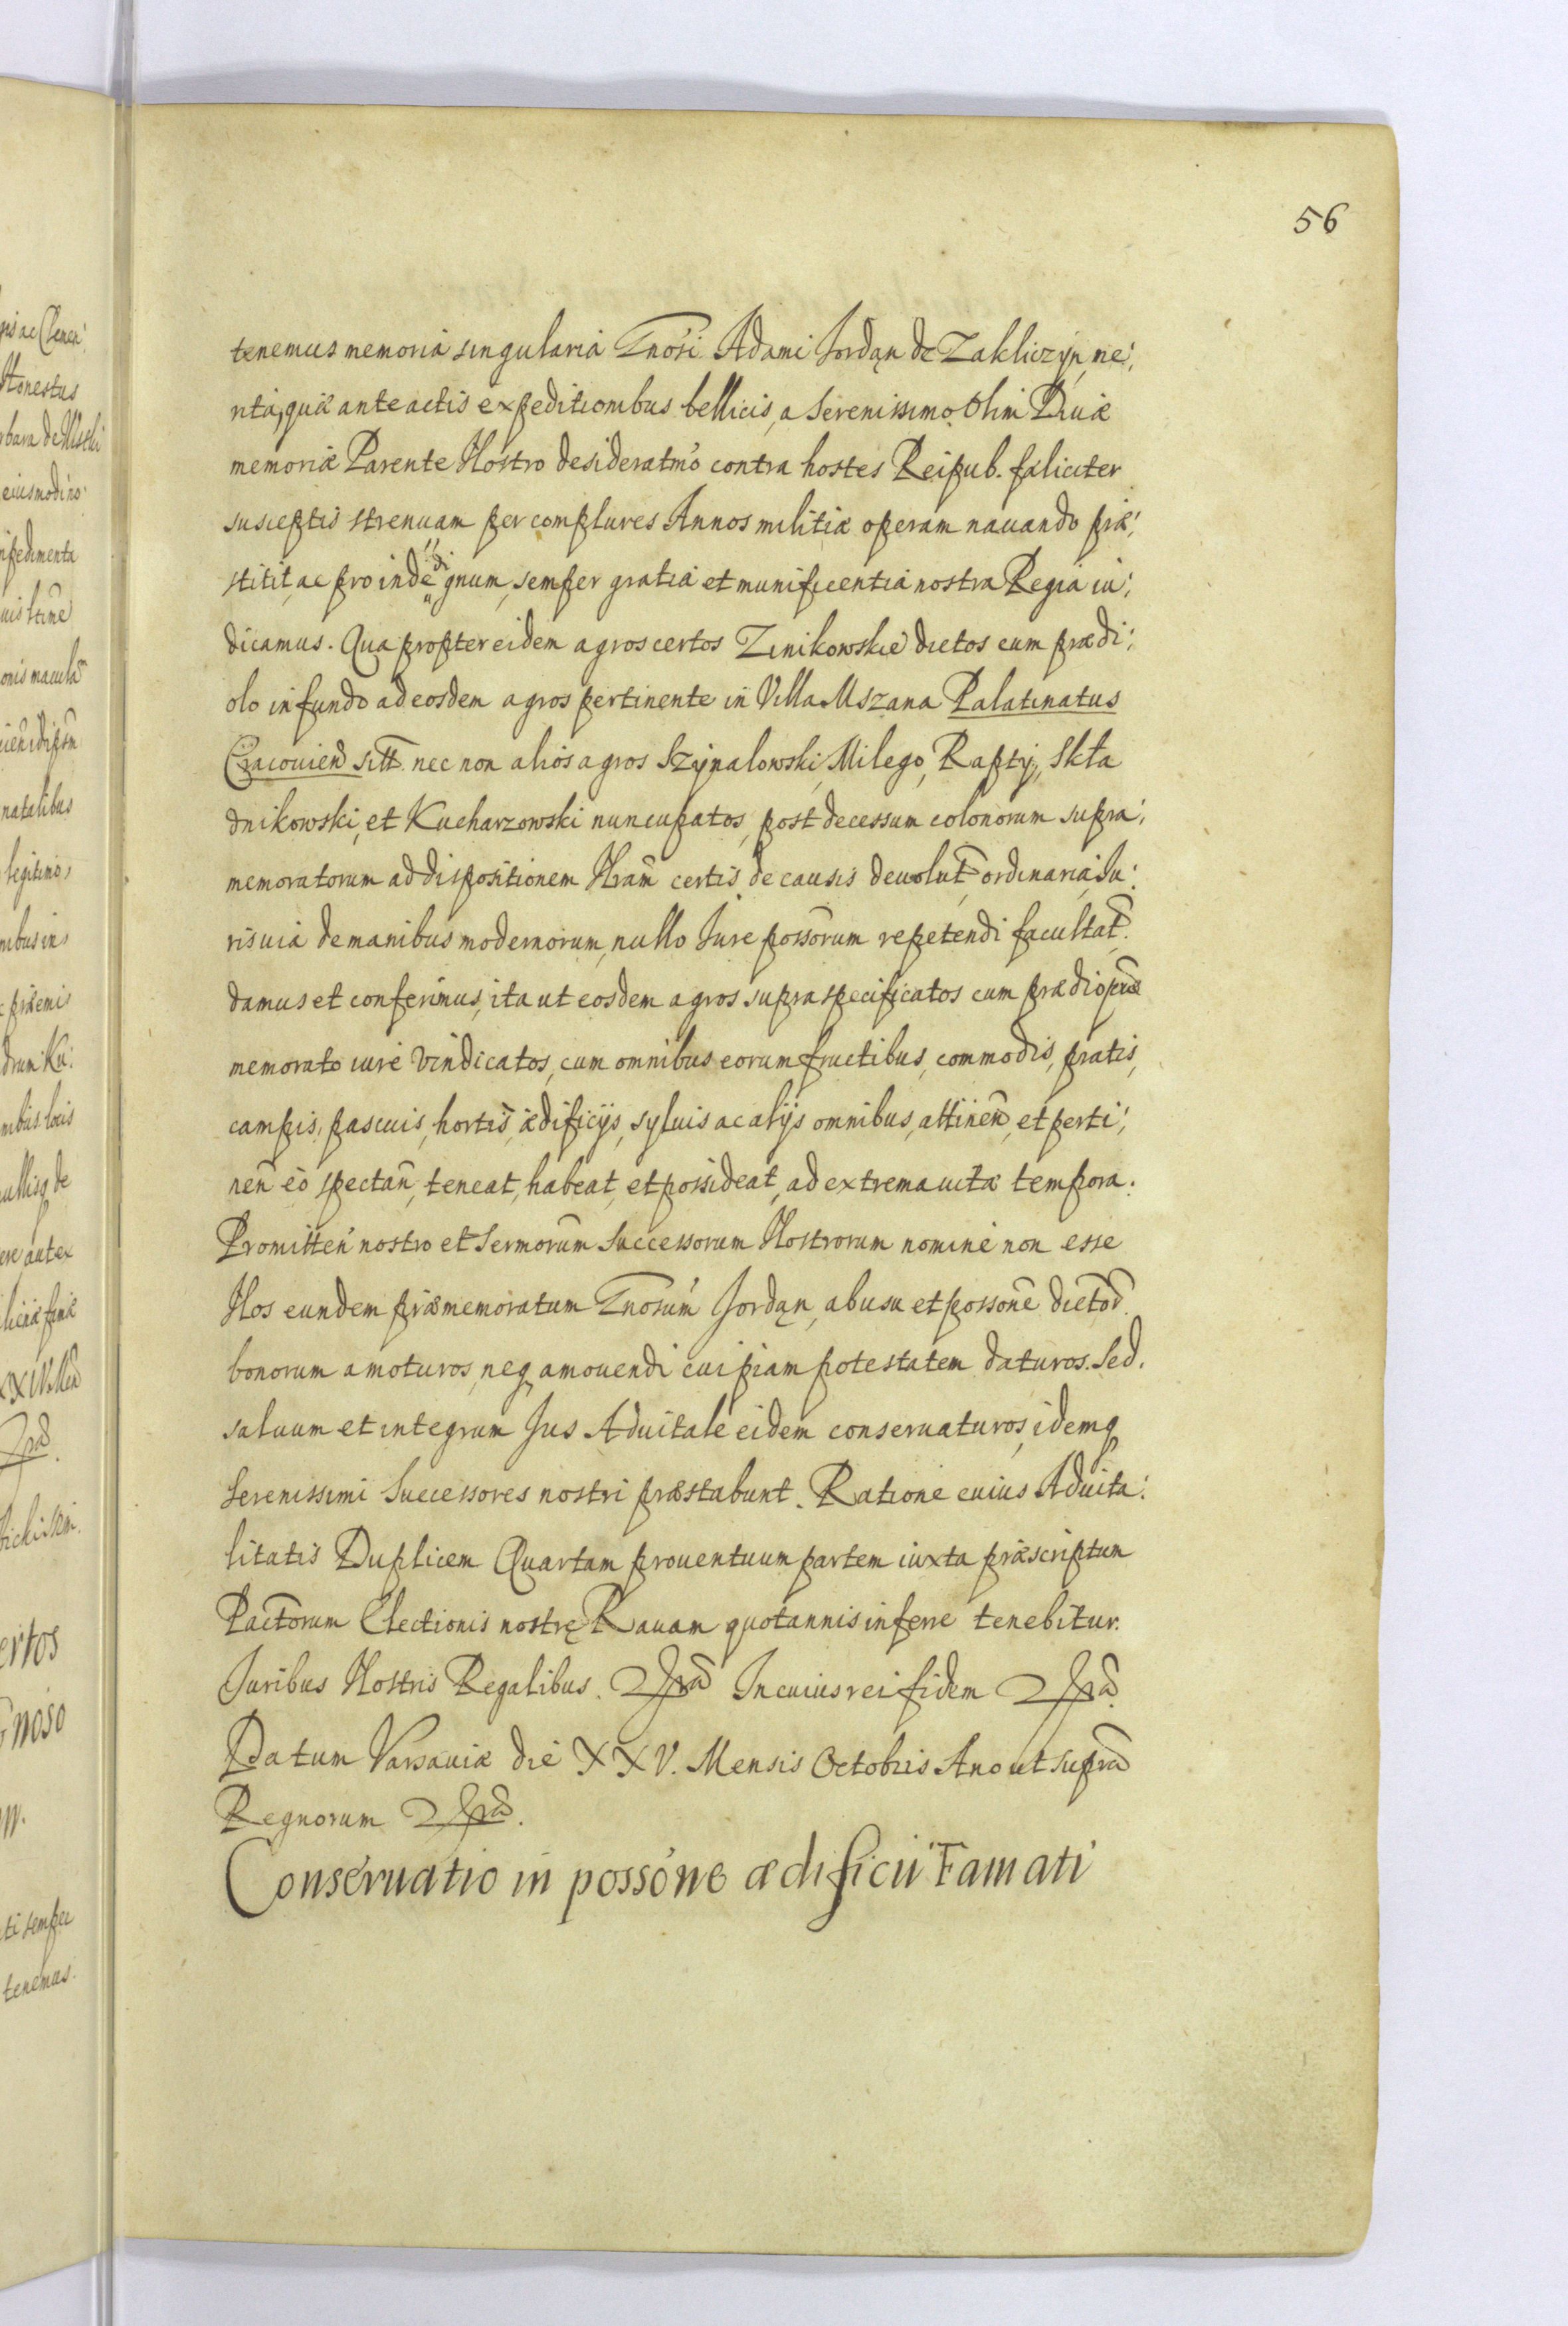 56
tenemus memoria singularia Gnosi Adami Jordąn de Zakliczyn, me:
rita, quæ ante actis expeditionibus bellicis, a Serenissimo Olim Diuæ
memoriæ Parente Nostro desideratmo contra hostes Reipub. fæliciter
susceptis strenuam per complures Annos militiæ operam nauando præ:
stitit, ac proinde dignum, semper gratia et munificentia nostra Regia iu:
dicamus. Qua propter eidem agros certos Zinikowskie dictos cum prædi:
olo in fundo ad eosdem agros pertinente in Villa Mszana Palatinatus
Cracouien sitt. nec non alios agros Szynalowski, Milego, Rapty, Skła
dnikowski, et Kucharzowski nuncupatos, post decessum colonorum supra:
memoratorum ad dispositionem Nram certis de causis deuolut ordinaria Ju:
ris uia de manibus modernorum, nullo Jure possorum repetendi facultat.
damus et conferimus, ita ut eosdem agros supra specificatos cum prædio præ
memorato iure vindicatos, cum omnibus eorum fructibus, commodis, pratis,
campis, pascuis, hortis, ædificijs, syluis ac alijs omnibus, attinen, et perti:
nen eo spectan, teneat, habeat, et possideat, ad extrema uitæ tempora.
Promitten nostro et Sermorum Successorum Nostrorum nomine non esse
Nos eundem præmemoratum Gnosum Jordąn, ab usu et possone dictor
bonorum amoturos, neq amouendi cuipiam potestatem daturos. Sed.
saluum et integrum Jus Aduitale eidem conseruaturos, idemq
Serenissimi Successores nostri præstabunt. Ratione cuius Aduita:
litatis Duplicem Quartam prouentuum partem iuxta præscriptum
Pactorum Electionis nostrę Rauam quotannis inferre tenebitur.
Juribus Nostris Regalibus. In cuius rei fidem
Datum Varsauiæ die XXV. Mensis Octobris Ano ut supra
Regnorum
Conseruatio in possone ædificii Famati